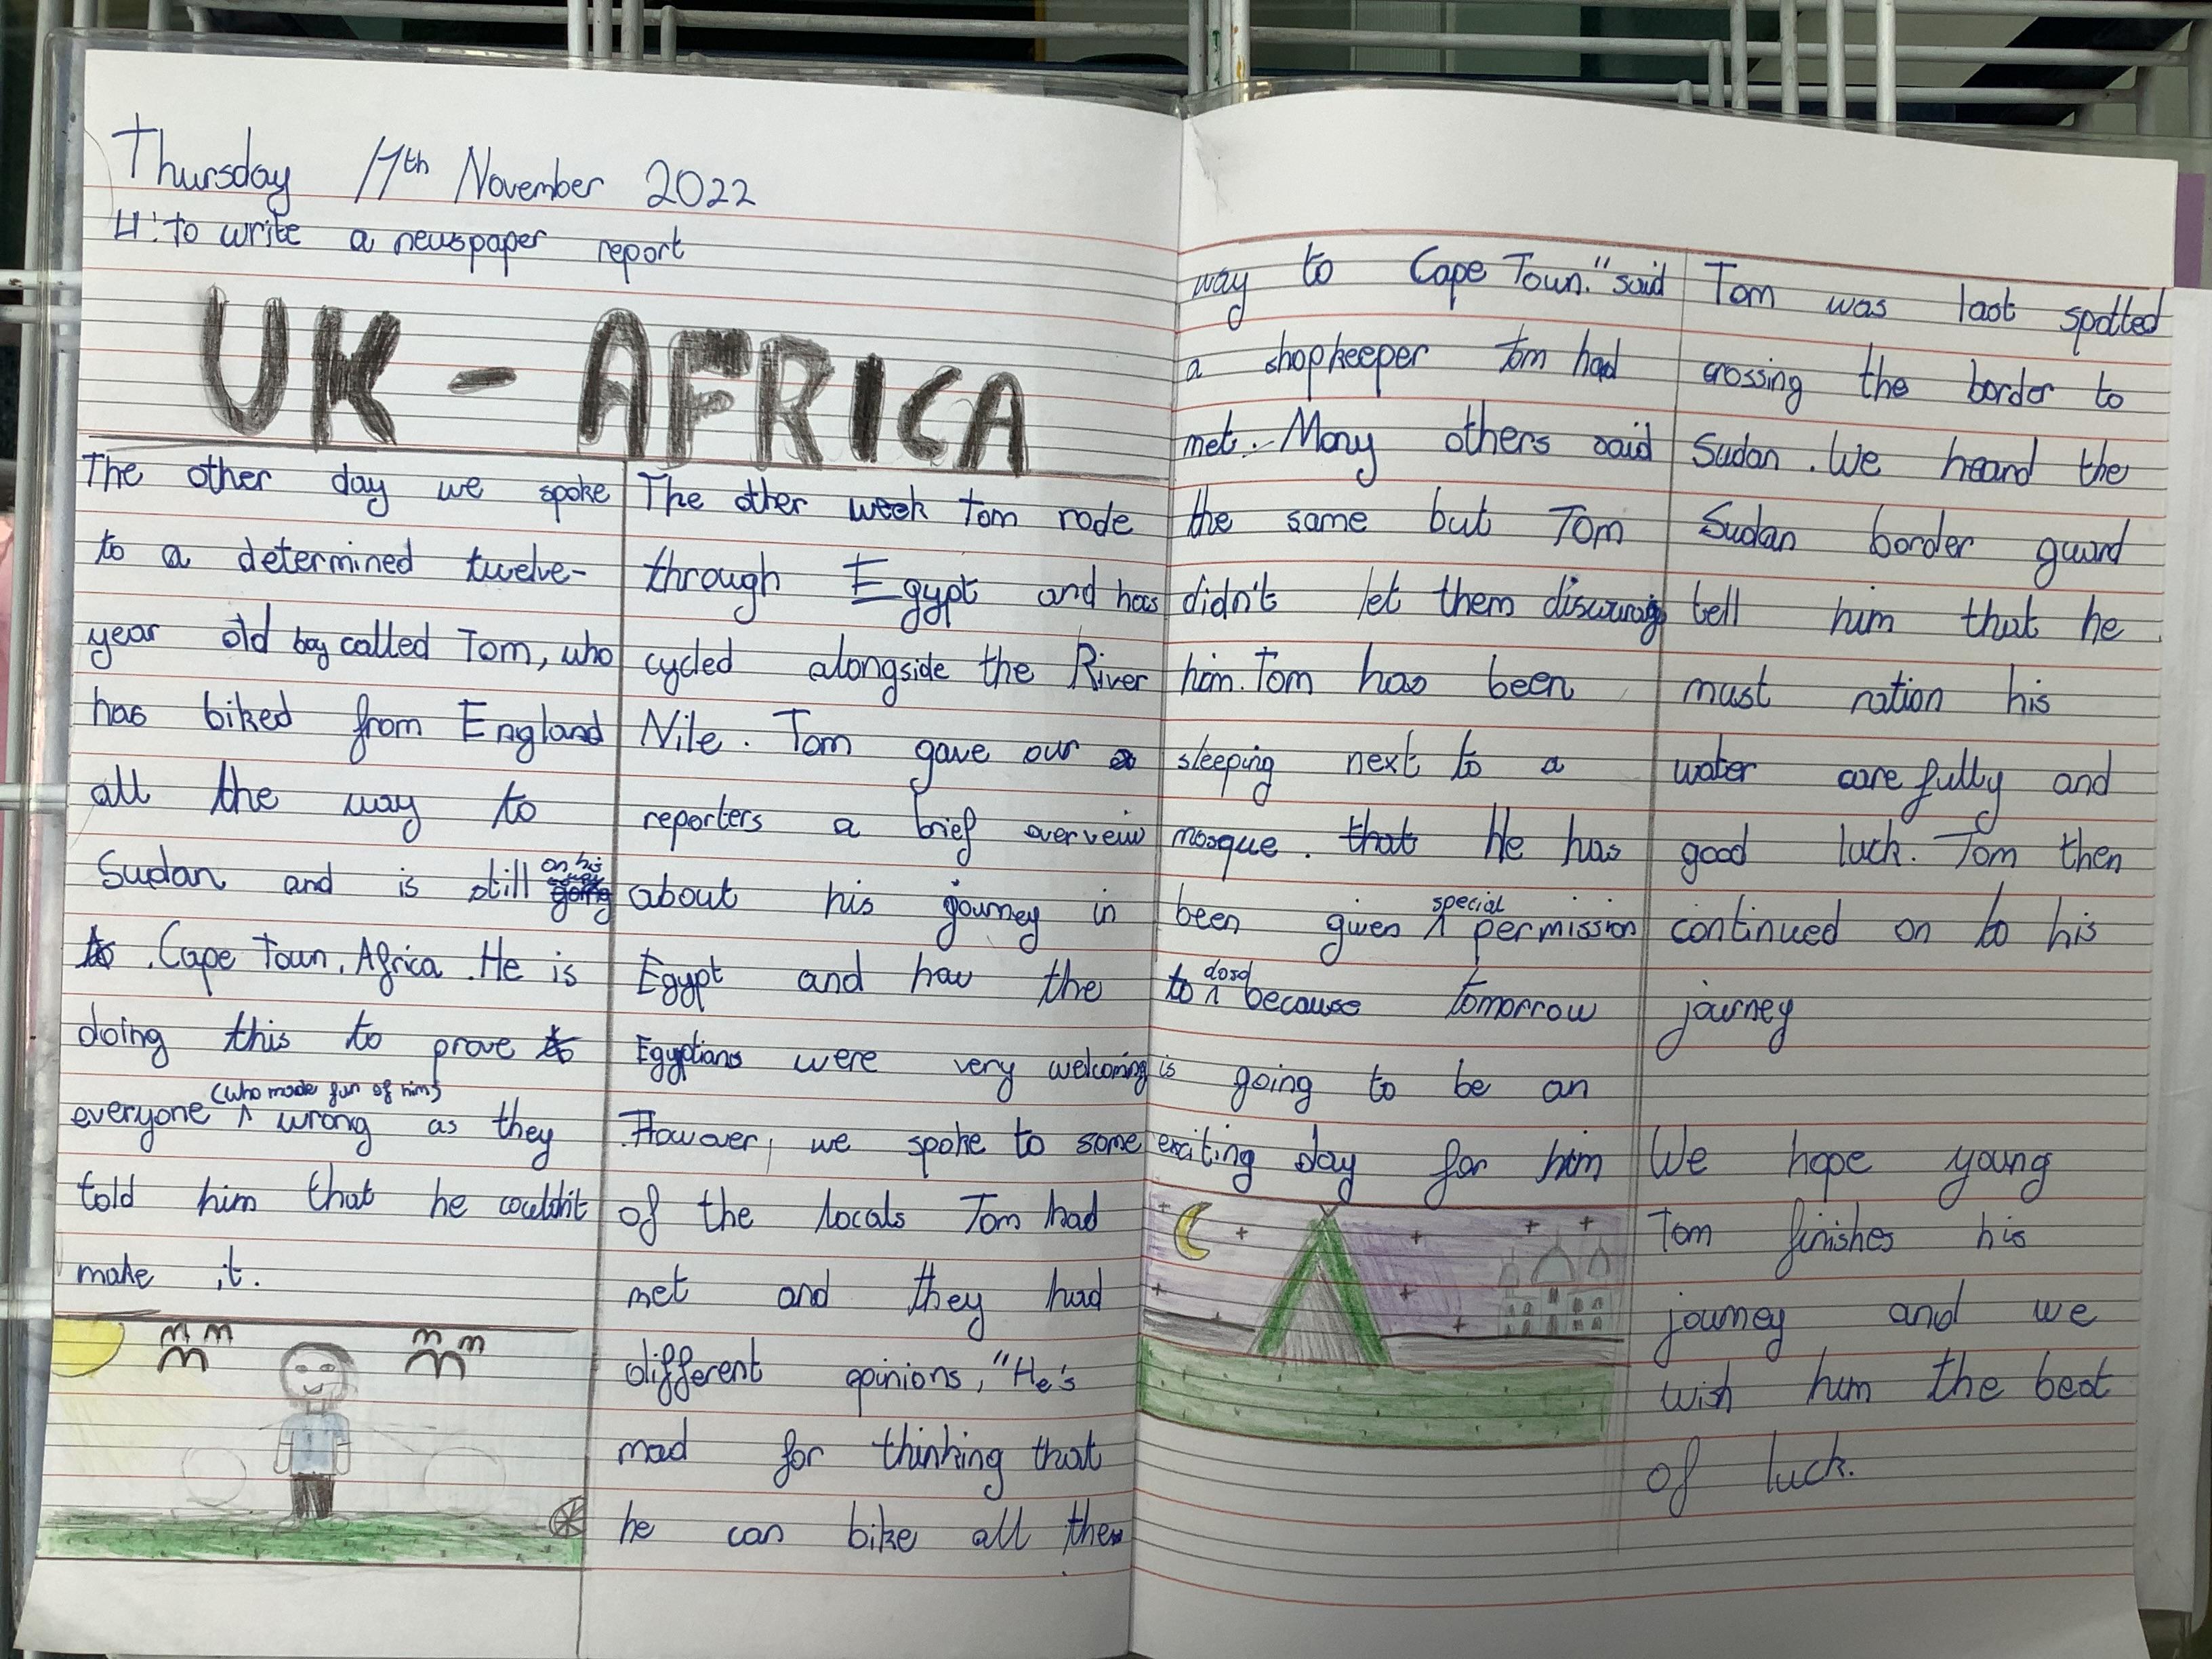 Thursday 17th November 2022
LI: to write a newspaper report
UK - AFRICA
The other day we spoke
to a determined twelve-
year old boy called Tom, who
has biked from England
all the way to
Sudan and is still on his
way
Cape Town, Africa. He is
doing this to prove
everyone (who made fun of him) wrong as they
told him that he couldn't
make it.
The other week Tom rode
through Egypt and has
cycled alongside the River
Nile. Tom gave our
reporters a brief overveiw
about his journey in
Egypt and how the
Egyptians were very welcoming
However, we spoke to some
of the locals Tom had
met and they had
different opinions, "He's
mad for thinking that
he can bike all the
way to Cape Town." said
a shopkeeper Tom had
met. Many others said
the same but Tom
didn't let them
him. Tom has been
sleeping next to a
mosque. that He has
been given special permission
to because tomorrow
is going to be an
exciting day for him
Tom was last spotted
crossing the border to
Sudan. We heard the
Sudan border guard
tell him that he
must ration his
water carefully and
good luck. Tom then
continued on to his
journey
We hope young
Tom finishes his
journey and we
wish him the best
of luck.